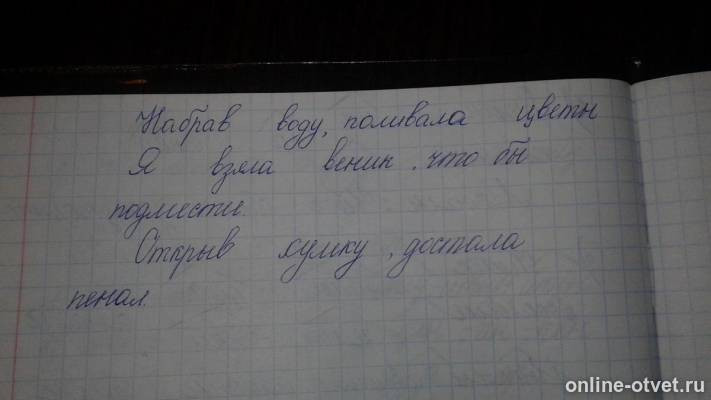 Набрав воду, поливала цветы
Я взяла веник, что бы
подмести.
Открыв сумку, достала
пенал.
online-otvet.ru